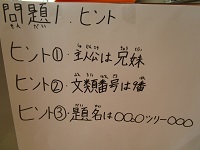 問題1. ヒント
もんだい
ヒント①・主人公は兄妹
ヒント②・文類番号は番
ヒント③・題名は○○○ツリー○○○